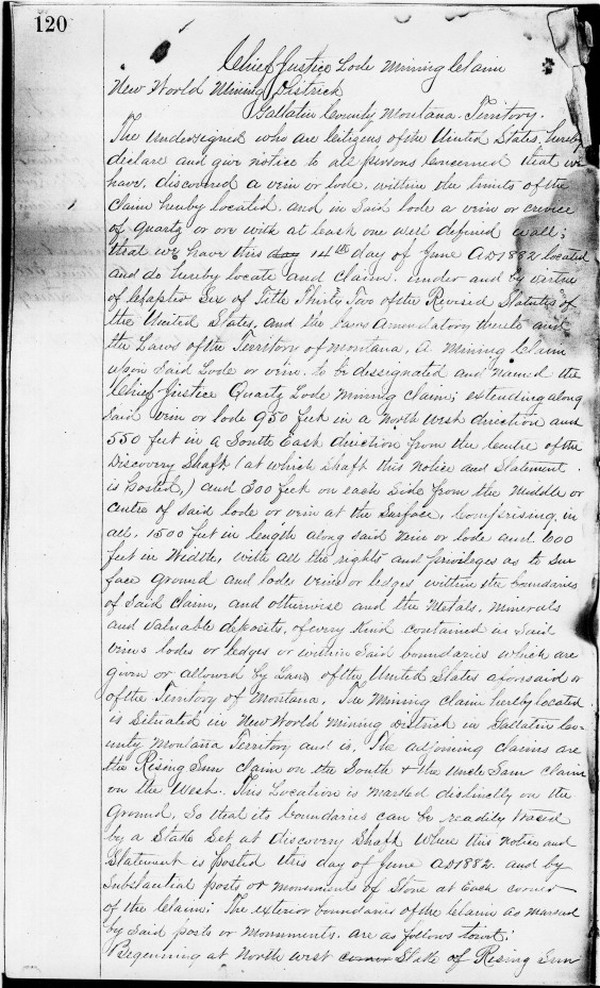 120
Chief Justice Lode Mining Claim
New World Mining District
Gallatin County Montana. Territory.
The undersigned who are Citizens of the United States, hereby
declare and give notice to all persons concerned that we
have, discovered a vein or lode, within the limits of the
claim hereby located, and in said lode a vein or crevice
of quartz or ore with at least one well defined wall;
that we have this day 14th day of June AD 1882 located
and do hereby locate and claim, under and by virtue
of Chapter Six of Title Thirty Two of the Revised Statutes of
the United States, and the laws amendatory thereto and
the Laws of the Territory of Montana, a Mining Claim
upon said Lode or vein, to be dessegnated and named the
Chief Justice Quartz Lode Mining Claim; extending along
said vein or lode 950 feet in a North West direction and
550 feet in a South East direction from the Centre of the
Discovery Shaft (at which shaft this notice and statement
is posted,) and 300 feet on each side from the middle or
centre of said lode or vein at the surface, comprising in
all, 1500 feet in length along said vein or lode and 600
feet in width, with all the rights and privileges as to sur
face ground and lodes veins or ledges within the boundaries
of said claim, and otherwise and the metals, minerals
and valuable deposits, of every kind contained in said
veins lodes or ledges or within said boundaries which are
given or allowed by Laws of the United States aforesaid or
of the Territory of Montana, The Mining claim hereby located
is situated in New World Mining District in Gallatin Co-
unty, Montana Territory and is, The adjoining claims are
the Rising Sun claim on the South & the Uncle Sam claim
on the West. This Location is marked distinctly on the
Ground, so that its boundaries can be readily traced
by a Stake set at discovery Shaft where this notice and
Statement is posted this day of June AD 1882. and by
Substantial posts or monuments of stone at each corner
of the Claim; The exterior boundaries of the Claim as marked
by said posts or monuments, are as follows towit:
Beginning at North west corner Stake of Rising Sun